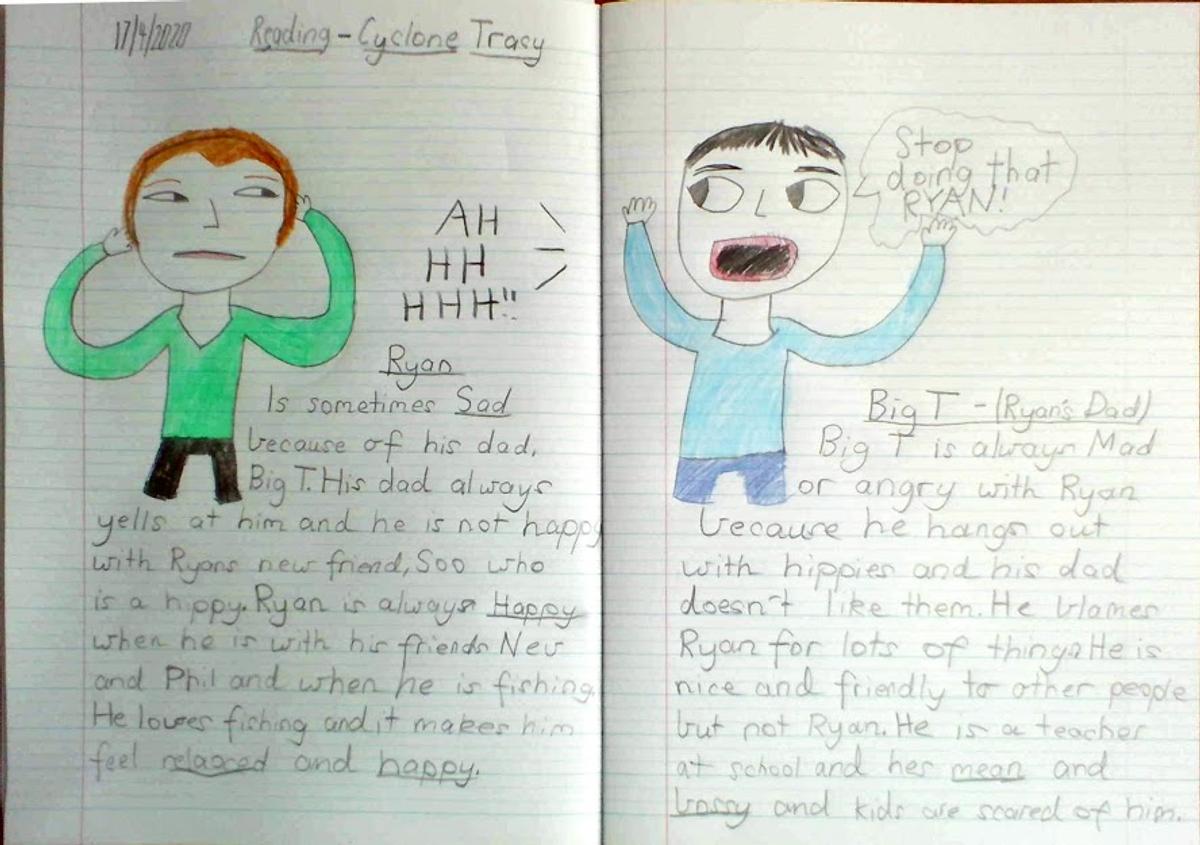 17/4/2020 Reading - Cyclone Tracy
AH
HH
HHH!!
Ryan
Is sometimes Sad
because of his dad,
Big T. His dad always
yells at him and he is not happy
with Ryans new friend, Soo who
is a hippy. Ryan is always Happy
when he is with his friends Nev
and Phil and when he is fishing.
He loves fishing and it makes him
feel relaaced and happy.
Stop
doing that
RYAN!
Big T - (Ryan's Dad)
Big T is always Mad
or angry with Ryan
because he hangs out
with hippies and his dad
doesn't like them. He blames
Ryan for lots of things. He is
nice and friendly to other people
but not Ryan. He is a teacher
at school and hes mean and
bossy and kids are scared of him.